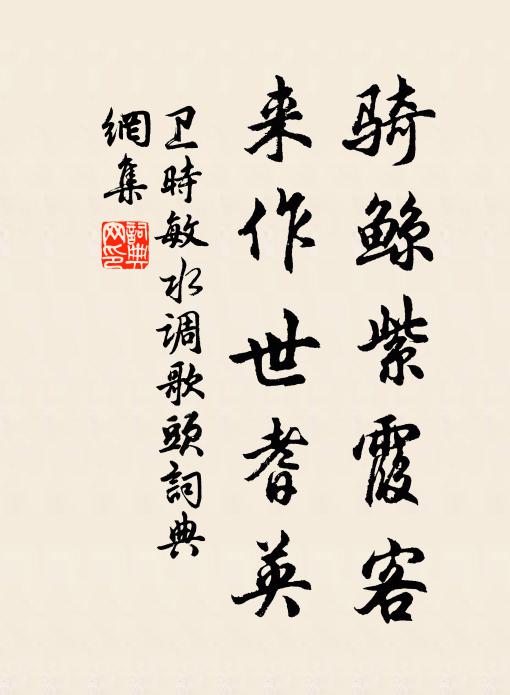 骑鲸紫霞客
来作世耆英
卫時敏水调歌頭詞典
網集
詞典
网印